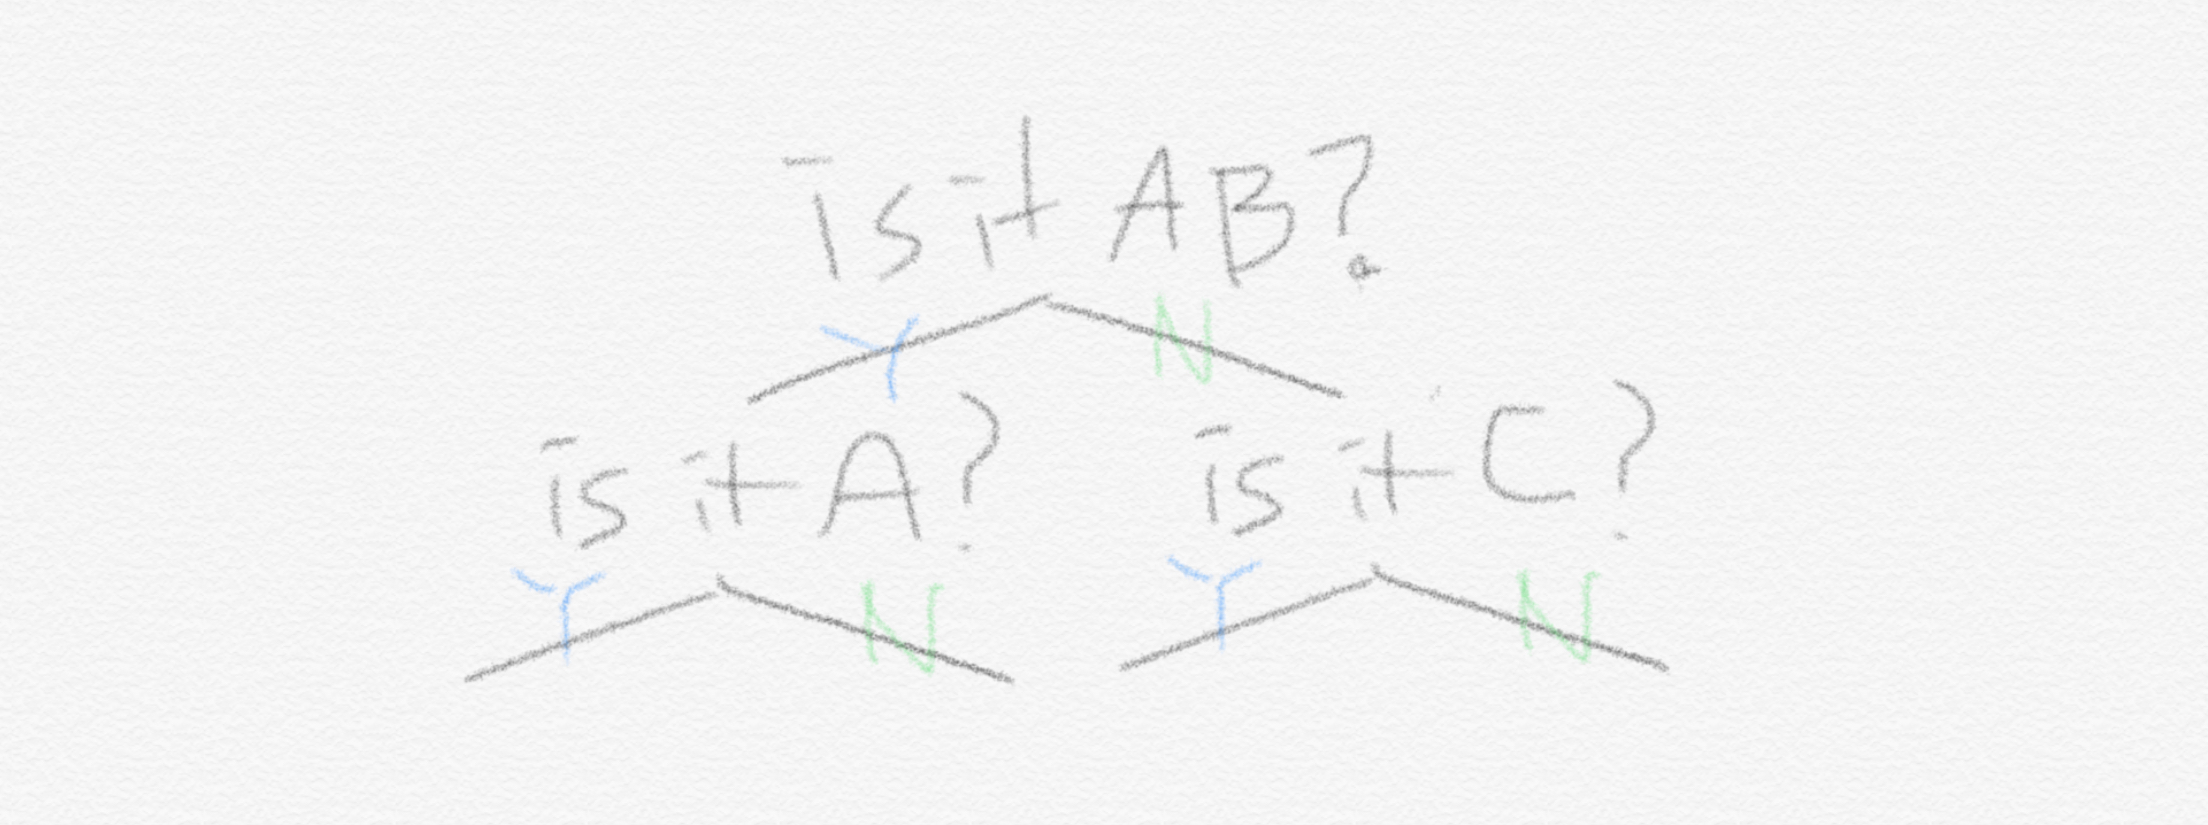 is it AB?
Y N
is it A? is it C?
Y N Y N